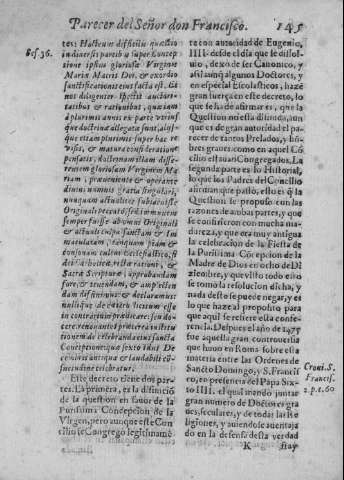 Parecer del Señor don Francisco. 145
Ses. 36.
tes: Hactenus difficilis quæstio
in diversis partib. & super Concep-
tione ipsius gloriosæ Virginis
Mariæ Matris Dei, & exordio
sanctificationis eius facta est. Et
nos diligenter inspectis auctori-
tatibus & rationibus, quæ iam
à plurimis annis ex parte vtrius-
que doctrinæ allegata sunt, aliis-
que etiam plurimis super hac re
visis, & matura consideratione
pensatis, doctrinam illam disse-
rentem gloriosam Virginem Ma-
riam, præveniente & operante
divini numinis gratia singulari,
nunquam actualiter subiacuisse
Originali peccato, sed immunem
semper fuisse ab omni Originali
& actuali culpa sanctam & im-
maculatam, tanquam piam &
consonam cultui Ecclesiastico, fi-
dei Catholicæ, rectæ rationi, &
Sacræ Scripturæ, approbandam
fore, & tenendam, & amplecten-
dam diffinimus: & declaramus:
nullique de cætero licitum esse
in contrarium prædicare: seu do-
cere. renovantes præterea institu-
tionem de celebranda eius sancta
Conceptione: quæ sexto idus De-
cembris antiqua & laudabili con-
suetudine celebratur.
Este decreto tiene dos par-
tes. La primera, es la difinició
de la question en favor de la
Purissima Concepcion de la
Virgen, pero aunque este Con
cilio se Congregó legitimamé
te con autoridad de Eugenio,
IIII. desde el dia que se dissol-
vio, dexó de ser Canonico, y
assi aunq algunos Doctores, y
en especial Escolasticos, hazé
gran fuerça en este decreto, lo
que se ha de afirmar es, que la
Question no esta difinida, aun
que es de gran autoridad el pa
recer de tantos Prelados, y hó-
bres graves como en aquel Có
cilio estauan Congregados. La
segunda parte es lo Historial,
lo que los Padres del Concilio
afirman que passó, esto es q la
Question se propuso con las
razones de ambas partes, y que
se confirieron con mucha ma-
dureza, y que era muy antigua
la celebracion de la Fiesta de
la Purissima Cócepcion de la
Madre de Dios en ocho de Di
ziembre, y que visto todo esto
se tomó la resolucion dicha, y
nada desto se puede negar, y es
lo que haze al proposito para
que aqui se refiere esta confe-
rencia. Despues el año de 1475
fue aquella gran controversia
que huuo en Roma sobre esta
materia entre las Ordenes de
Sancto Domingo, y S. Francis
co, en presencia del Papa Six-
to IIII. el qual mandó juntar
gran numero de Doctores gra
ues, seculares, y de todas las Re
ligiones, y auiendose auentaja
do en la defensa desta verdad
Croni. S.
Francis.
2. p. c. 60
K stay